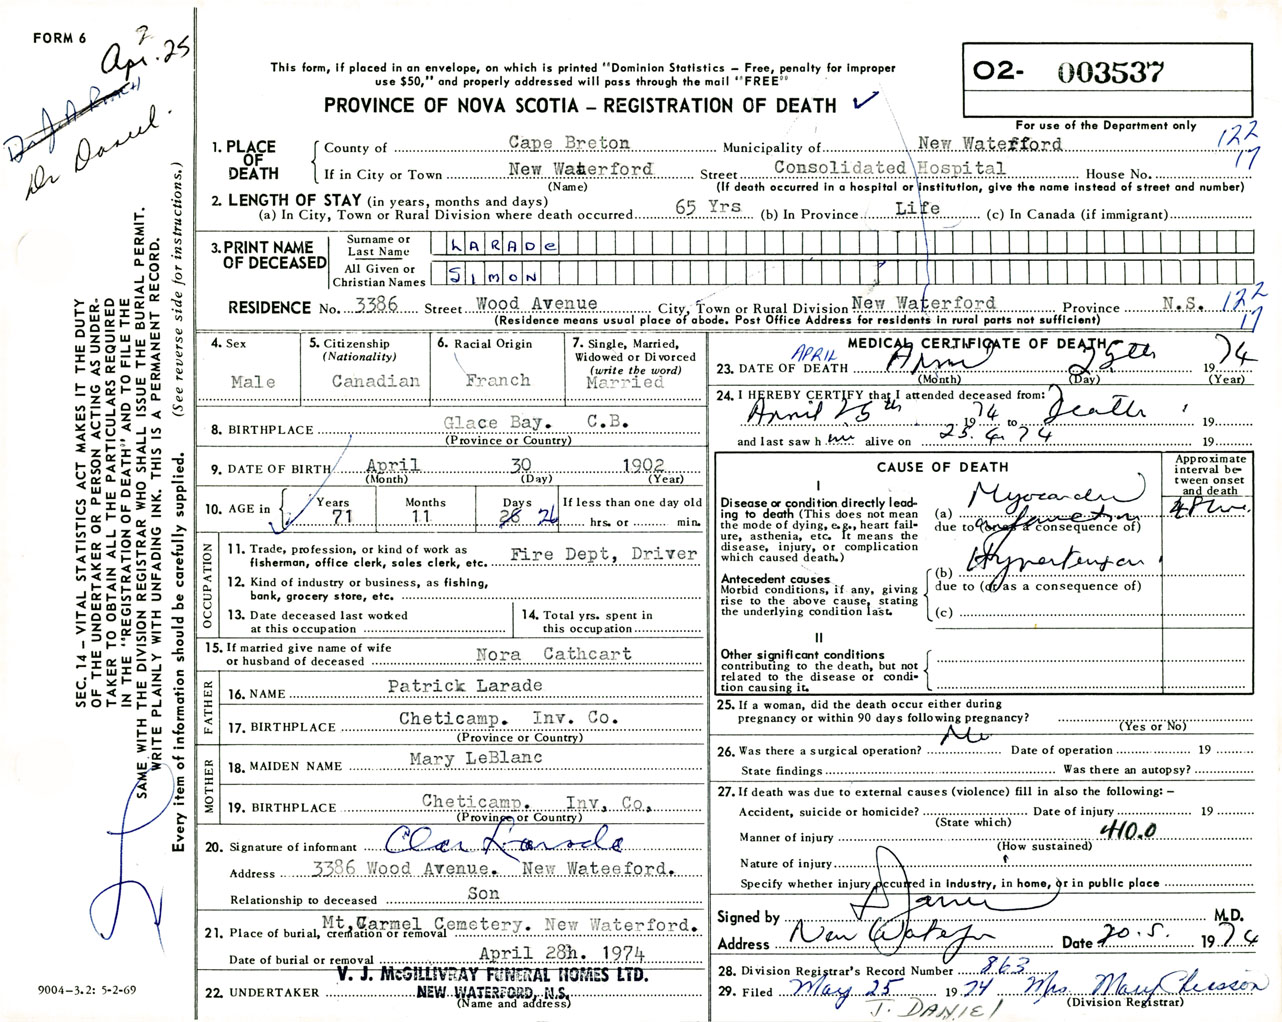 FORM 6
?
Apr. 25
Dr J A Roach
Dr Daniel.
This form, if placed in an envelope, on which is printed "Dominion Statistics – Free, penalty for improper
use $50," and properly addressed will pass through the mail "FREE"
PROVINCE OF NOVA SCOTIA – REGISTRATION OF DEATH ✓
02- 003537
For use of the Department only
122
17
1. PLACE OF DEATH
County of Cape Breton Municipality of New Waterford
If in City or Town New Waterford Street Consolidated Hospital House No.
(Name) (If death occurred in a hospital or institution, give the name instead of street and number)
2. LENGTH OF STAY (in years, months and days)
(a) In City, Town or Rural Division where death occurred 65 Yrs (b) In Province Life (c) In Canada (if immigrant)
3. PRINT NAME OF DECEASED
Surname or Last Name LARADe
All Given or Christian Names SIMON
RESIDENCE No. 3386 Street Wood Avenue City, Town or Rural Division New Waterford Province N.S. 122
(Residence means usual place of abode. Post Office Address for residents in rural parts not sufficient) 17
4. Sex
Male
5. Citizenship
(Nationality)
Canadian
6. Racial Origin
Franch
7. Single, Married,
Widowed or Divorced
(write the word)
Married
8. BIRTHPLACE Glace Bay. C.B.
(Province or Country)
9. DATE OF BIRTH April 30 1902
(Month) (Day) (Year)
10. AGE in
Years Months Days If less than one day old
71 11 28 26 hrs. or min.
OCCUPATION
11. Trade, profession, or kind of work as
fisherman, office clerk, sales clerk, etc. Fire Dept, Driver
12. Kind of industry or business, as fishing,
bank, grocery store, etc.
13. Date deceased last worked
at this occupation
14. Total yrs. spent in
this occupation
15. If married give name of wife
or husband of deceased Nora Cathcart
FATHER
16. NAME Patrick Larade
17. BIRTHPLACE Cheticamp. Inv. Co.
(Province or Country)
MOTHER
18. MAIDEN NAME Mary LeBlanc
19. BIRTHPLACE Cheticamp. Inv, Co,
(Province or Country)
20. Signature of informant Larade
Address 3386 Wood Avenue. New Wateeford.
Relationship to deceased Son
21. Place of burial, cremation or removal Mt, Carmel Cemetery. New Waterford.
Date of burial or removal April 28h. 1974
V. J. McGILLIVRAY FUNERAL HOMES LTD.
22. UNDERTAKER NEW WATERFORD, N.S.
(Name and address)
MEDICAL CERTIFICATE OF DEATH
APRIL
23. DATE OF DEATH April 25th 1974
(Month) (Day) (Year)
24. I HEREBY CERTIFY that I attended deceased from:
April 25th 1974 to Death 19
and last saw him alive on 25.4.74 19
CAUSE OF DEATH
Approximate
interval be-
tween onset
and death
I
Disease or condition directly lead-
ing to death (This does not
mean the mode of dying, e.g., heart fail-
ure, asthenia, etc. It means the
disease, injury, or complication
which caused death.)
(a) Myocardial
infarction
due to (or as a consequence of)
Antecedent causes
Morbid conditions, if any, giving
rise to the above cause, stating
the underlying condition last.
(b) Hypertension
due to (or as a consequence of)
(c)
II
Other significant conditions
contributing to the death, but not
related to the disease or condi-
tion causing it.
25. If a woman, did the death occur either during
pregnancy or within 90 days following pregnancy?
(Yes or No)
26. Was there a surgical operation? No Date of operation 19
State findings Was there an autopsy?
27. If death was due to external causes (violence) fill in also the following: –
Accident, suicide or homicide? Date of injury 19
(State which)
Manner of injury 410.0
(How sustained)
Nature of injury
Specify whether injury occurred in Industry, in home, or in public place
Signed by Daniel M.D.
Address New Waterford Date 20.5. 1974
28. Division Registrar's Record Number 863
29. Filed May 25 1974 Mrs Mary Chiasson
(Division Registrar)
J. DANIEL
SEC. 14 – VITAL STATISTICS ACT MAKES IT THE DUTY
OF THE UNDERTAKER OR PERSON ACTING AS UNDER-
TAKER TO OBTAIN ALL THE PARTICULARS REQUIRED
IN THE "REGISTRATION OF DEATH" AND TO FILE THE
SAME WITH THE DIVISION REGISTRAR WHO SHALL ISSUE THE BURIAL PERMIT.
WRITE PLAINLY WITH UNFADING INK. THIS IS A PERMANENT RECORD.
Every item of information should be carefully supplied. (See reverse side for instructions.)
9004-3.2: 5-2-69